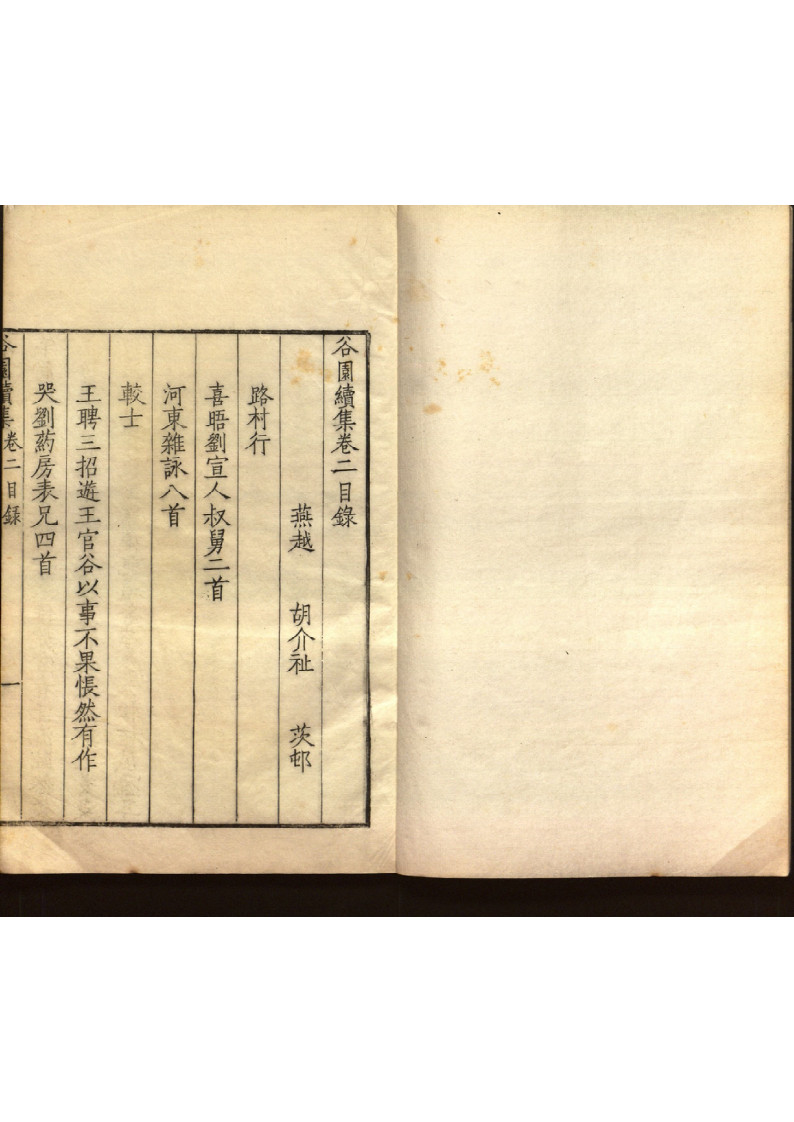 谷園續集卷二目錄
燕越 胡介祉 茨邨
路村行
喜晤劉宣人叔舅二首
河東雜詠八首
較士
王聘三招遊王官谷以事不果悵然有作
哭劉葯房表兄四首
谷園續集 卷二 目錄 一